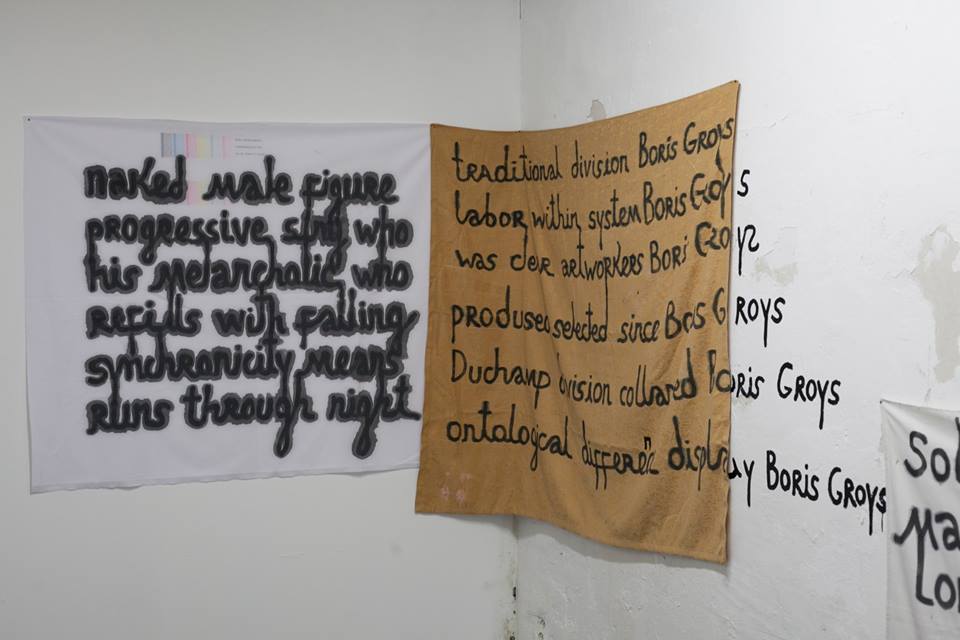 naked male figure
progressive sing who
his melancholic who
refills with falling
synchronicity means
runs through night
traditional division Boris Groys
labor within system Boris Groys
was der artworkers Boris Groys
produsec selected since Boris Groys
Duchamp division collared Boris Groys
ontological differen display Boris Groys
Sol
Ma
Lon